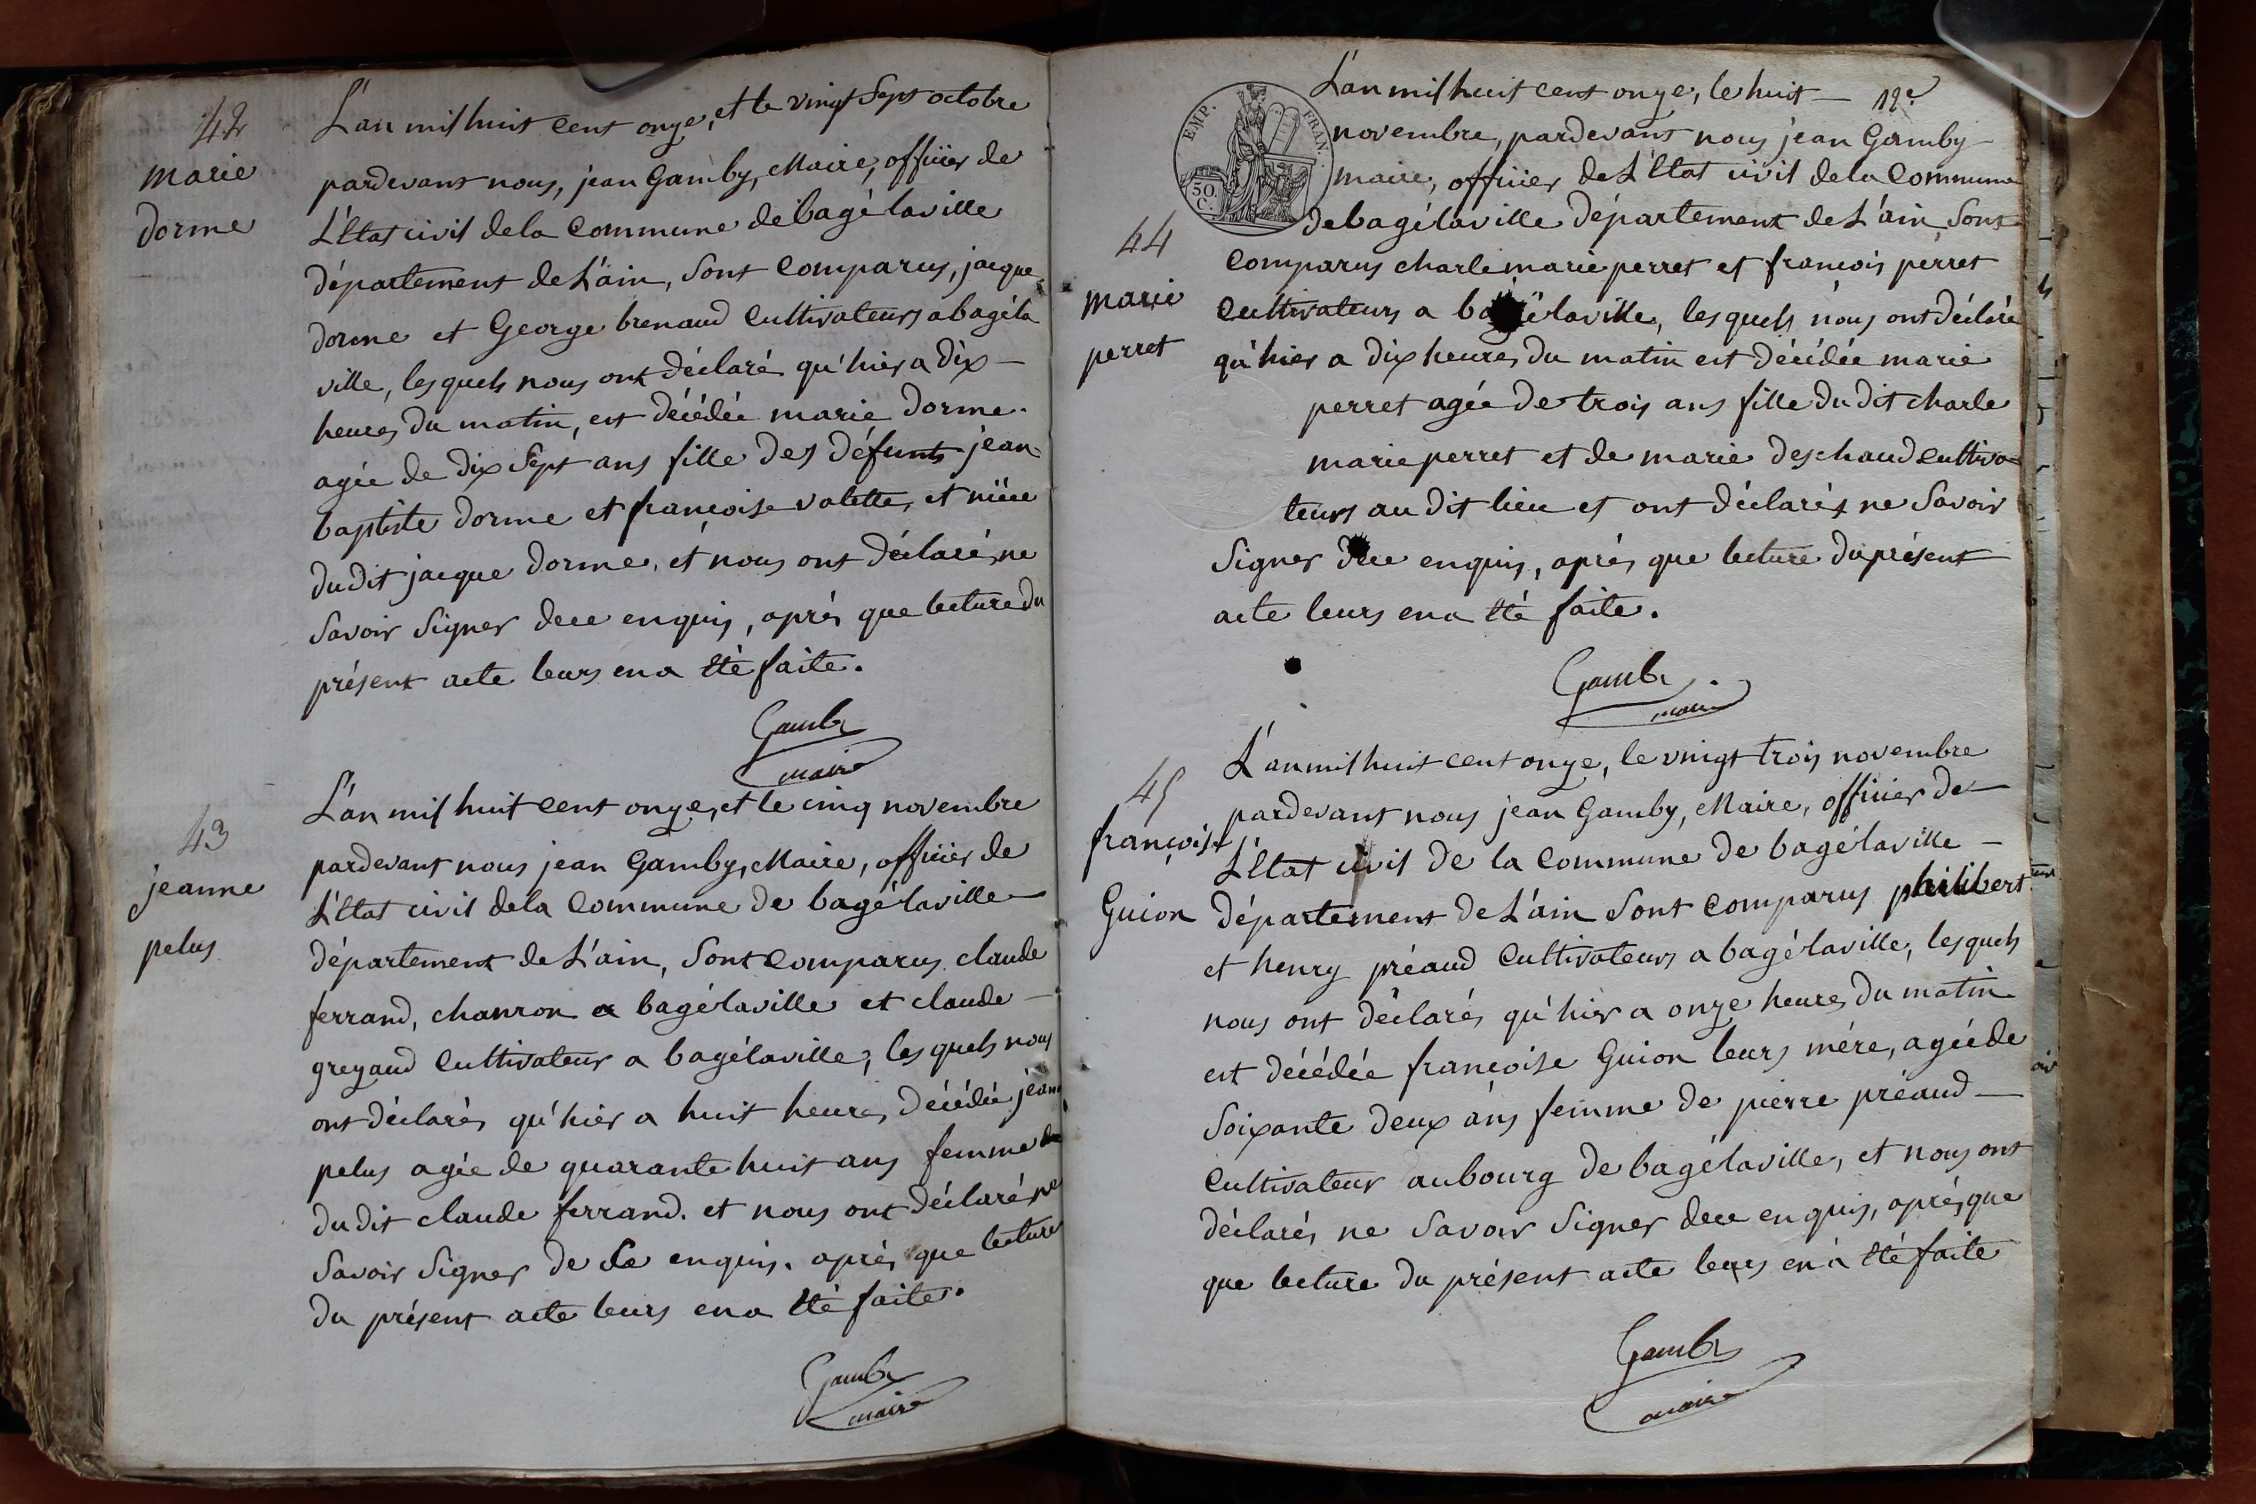 42
marie
dorme
L'an mil huit cent onze, et le vingt Sept octobre
pardevant nous, jean Gamby, Maire, officier de
L'Etat civil de la Commune de bagélaville
département de L'ain, Sont Comparus, jacque
dorme et George brenaud Cultivateurs a bagéla
ville, lesquels nous ont déclaré qu'hier a dix -
heures du matin, est décédée marie dorme.
agée de dix Sept ans fille des défunts jean-
baptiste dorme et françoise valette, et nièce
du dit jacque dorme, et nous ont déclarés ne
Savoir Signer de ce enquis, après que lecture du
présent acte leurs en a été faite.
Gamby
maire
43
jeanne
pelus
L'an mil huit cent onze, et le cinq novembre
pardevant nous jean Gamby, Maire, officier de
L'Etat civil de la Commune de bagélaville
département de L'ain, Sont Comparus claude
ferrand, charron a bagélaville et claude -
grezaud Cultivateur a bagélaville, lesquels nous
ont déclarés qu'hier a huit heures, décédée jeanne
pelus agée de quarante huit ans femme
du dit claude ferrand. et nous ont déclarés ne
Savoir Signer de ce enquis. après que lecture
du présent acte leurs en a été faite.
Gamby
maire
EMP. FRAN.
50
C.
12e
L'an mil huit cent onze, le huit -
novembre, pardevant nous jean Gamby -
maire, officier de L'Etat civil de la Commune
de bagélaville département de L'ain, Sont
44
marie
perret
Comparus charle marie perret et francois perret
Cultivateurs a bagélaville, lesquels nous ont déclaré
qu'hier a dix heures du matin est décédée marie
perret agée de trois ans fille du dit charle
marie perret et de marie deschaud Cultiva=
teurs au dit lieu et ont déclarés ne Savoir
Signer de ce enquis, après que lecture du présent
acte leurs en a été faite.
Gamby
maire
45
françoise
Guion
L'an mil huit cent onze, le vingt trois novembre
pardevant nous jean Gamby, Maire, officier de
L'Etat civil de la Commune de bagélaville -
département de L'ain Sont Comparus philibert
et henry préaud Cultivateurs a bagélaville, lesquels
nous ont déclarés qu'hier a onze heures du matin
est décédée françoise Guion leurs mère, agée de
Soixante deux ans femme de pierre préaud -
Cultivateur au bourg de bagélaville, et nous ont
déclarés ne Savoir Signer de ce enquis, après que
que lecture du présent acte leurs en a été faite
Gamby
maire